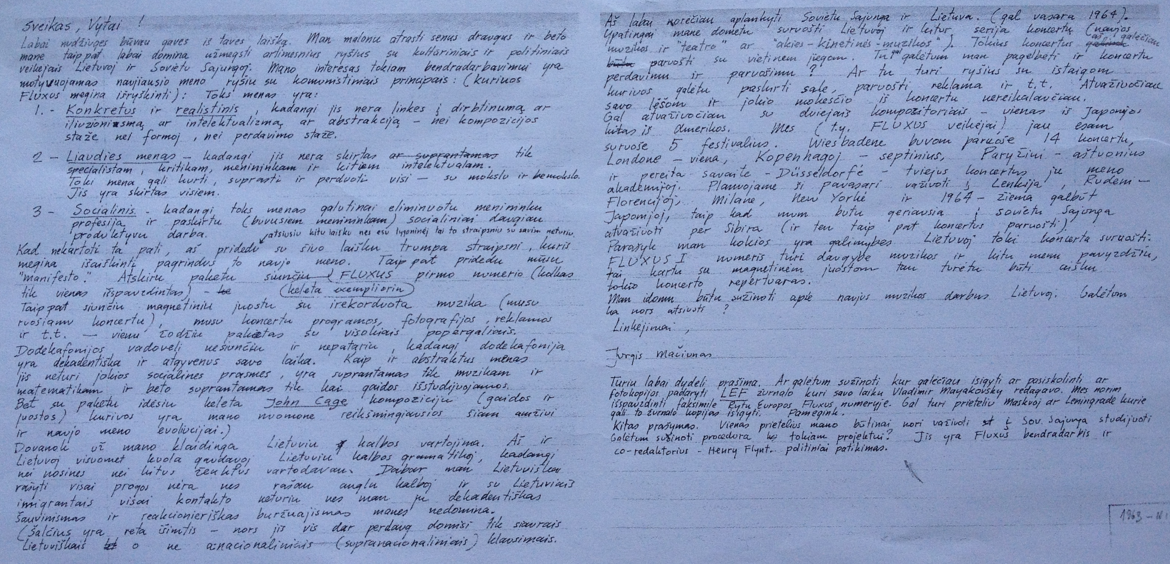 Sveikas, Vytai !
Labai nudžiugęs būvau gavęs iš tavęs laišką. Man malonu atrasti senus draugus ir beto
mane taip pat labai domina užmegsti ortimesnius ryšius su kultūriniais ir politiniais
veikėjais Lietuvoj ir Sovetu Sajungoj. Mano interesas tokiam bendradarbavimui yra
motyvuojamas naujausio meno ryšiu su komunistiniais principais: (kuriuos
FLUXUS megina išryškinti): Toks menas yra:
1. - Konkretus ir realistinis, kadangi jis nera linkes į dirbtinumą, ar
iliuzionismą, ar intelektualizmą, ar abstrakciją - nei kompozicijos
staže nei formoj, nei perdavimo staže.
2 - Liaudies menas - kadangi jis nera skirtas ar suprantamas tik
specialistam, kritikam, menininkam ir kitiem intelektualam.
Tokį meną gali kurti, suprasti ir perduoti visi - su mokslu ir bemokslo.
Jis yra skirtas visiem.
3 - Socialinis - kadangi toks menas galutinai eliminuotu menininku
profesija ir paskirtu (buvusiem menininkam) socialiniai daugiau
produktyvu darba.
patsiusiu kitu laišku nes esu lygoninej tai to straipsniu su savim neturiu
Kad nekartoti ta pati, aš pridedu su šiuo laišku trumpa straipsni, kuris
megina išaiškinti pagrindus to naujo meno. Taip pat pridedu mūsu
"manifesto". Atskiru paketu siunčiu FLUXUS pirmo numerio (kolkas
tik vienas išspavedintas) - (keleta exemplioriu)
Taip pat siunčiu magnetiniu juostu su irekorduota muzika (musu
ruošiamu koncertu), musu koncertu programos, fotografijos, reklamos
ir t.t. - vienu žodžiu paketas su visokiais popergaliais.
Dodekafonijos vadoveli nesiunčiu ir nepatariu kadangi dodekafonija
yra dekadentiška ir atgyvenus savo laika. Kaip ir abstraktus menas
jis neturi jokios socialines prasmes yra suprantamas tik muzikam ir
matematikam ir beto suprantamas tik kai gaidos išstudijuojamos.
Bet su paketu idesiu keleta John Cage kompoziciju (gaidos ir
juostos) kurivos yra mano nuomone reikšmingiausios šiam amžiui
ir naujo meno evoliucijai.)
Dovanok už mano klaidinga Lietuviu kalbos vartojima. Aš ir
Lietuvoj visuomet kuola gaudavoj Lietuviu kalbos gramatikoj, kadangi
nei nosines nei kitus ženklus vartodavau. Dabar man Lietuviškai
rašyti visai progos nera nes rašau anglu kalboj ir su Lietuviais
imigrantais visai kontakto neturiu nes man ju dekadentiškas
šauvinismas ir reakcionieriškas buržuajismas manęs nedomina.
(Šalčius yra reta išimtis - nors jis vis dar perdaug domisi tik siaurais
Lietuviškais o ne a nacionaliniais (supranacionaliniais) klausimais.
Aš labai norečiau aplankyti Sovietu Sajunga ir Lietuva. (gal vasara 1964).
Ypatingai mane dometu suruošti Lietuvoj ir kitur serija koncertu (naujos
muzikos ir "teatro" ar "akies-kinetinės-muzikos"). Tokius koncertus galečiau
paruošti su vietiniem jegom. Tu galetum man pagelbeti ir koncertu
perdavimu ir paruošimu? Ar tu turi ryšius su istaigom
kurivos galetu paskirti sale, paruošti reklama ir t.t. Atvažiuočiau
savo lešom ir jokio mokesčio iš koncertu nereikalaučiau.
Gal atvažiuočiau su dviejais kompozitoriais - vienas iš Japonijos
kitas iš Amerikos. Mes (t.y. FLUXUS veikejai) jau esam
suruošę 5 festivalius. Wiesbadene buvom paruošę 14 koncertu,
Londone - viena, Kopenhagoj - septinius, Paryžiui - aštuonius
ir pereita savaite - Düsseldorfe - dviejus koncertus ju meno
akademijoj. Planuojame ši pavasari važiuoti į Lenkija, Rudeni -
Florencijoj, Milane, New Yorke ir 1964 - žiema galbūt
Japonijoj, taip kad mum butu geriausia į sovietu Sajunga
atvažiuoti per Sibira (ir ten taip pat koncertus paruošti).
Parašyk man kokios yra galimybes Lietuvoj tokį koncerta suruošti.
FLUXUS I numeris turi daugybe muzikos ir kitu menu pavyzdžiu,
tai kartu su magnetinem juostom tau turetu būti aišku
tokio koncerto repertuaras.
Man domu būtu sužinoti apie naujus muzikos darbus Lietuvoj. Galetum
ka nors atsiusti ?
Linkėjimai,
Jurgis Mačiunas
Turiu labai dydelį prašima. Ar galetum sužinoti kur galečiau isigyti ar posiskolinti ar
fotokopijas padaryti LEF žurnalo kuri savo laiku Vladimir Mayakovsky redagavo. Mes norim
išspausdinti faksimile Rytu Europos Fluxus numeryje. Gal turi prieteliu Maskvoj ar Leningrade kurie
gali to žurnalo kopijas isigyti. Pamegink.
Kitas prašymas. Vienas prietelius mano būtinai nori važiuoti į Sov. Sajunga studijuoti
Galetum sužinoti procedura tokiam projektui? Jis yra Fluxus bendradarbis ir
co-redaktorius - Henry Flynt. politiniai patikimas.
1963